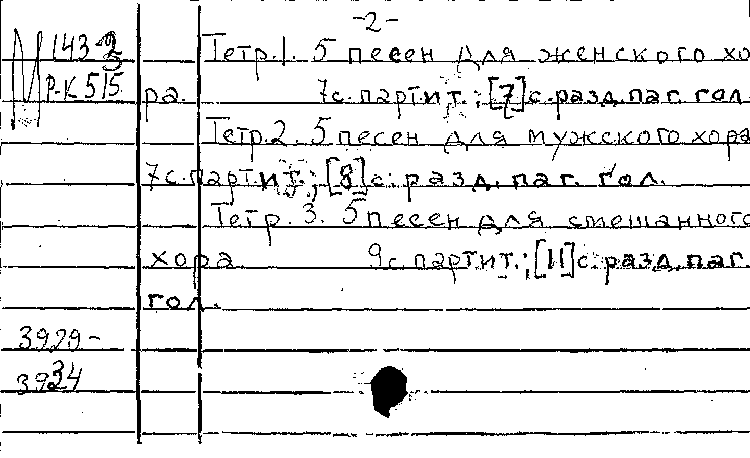 -2-
М 143-2
Тетр.1. 5 песен для женского хо
Р-К 515
ра. 7с. партит.; [7] с. разд. паг. гол.
Тетр.2. 5 песен для мужского хора
7с. партит.; [8] с. разд. паг. гол.
Тетр. 3. 5 песен для смешанного
хора 9с. партит.; [11] с. разд. паг.
гол.
3929-
3934